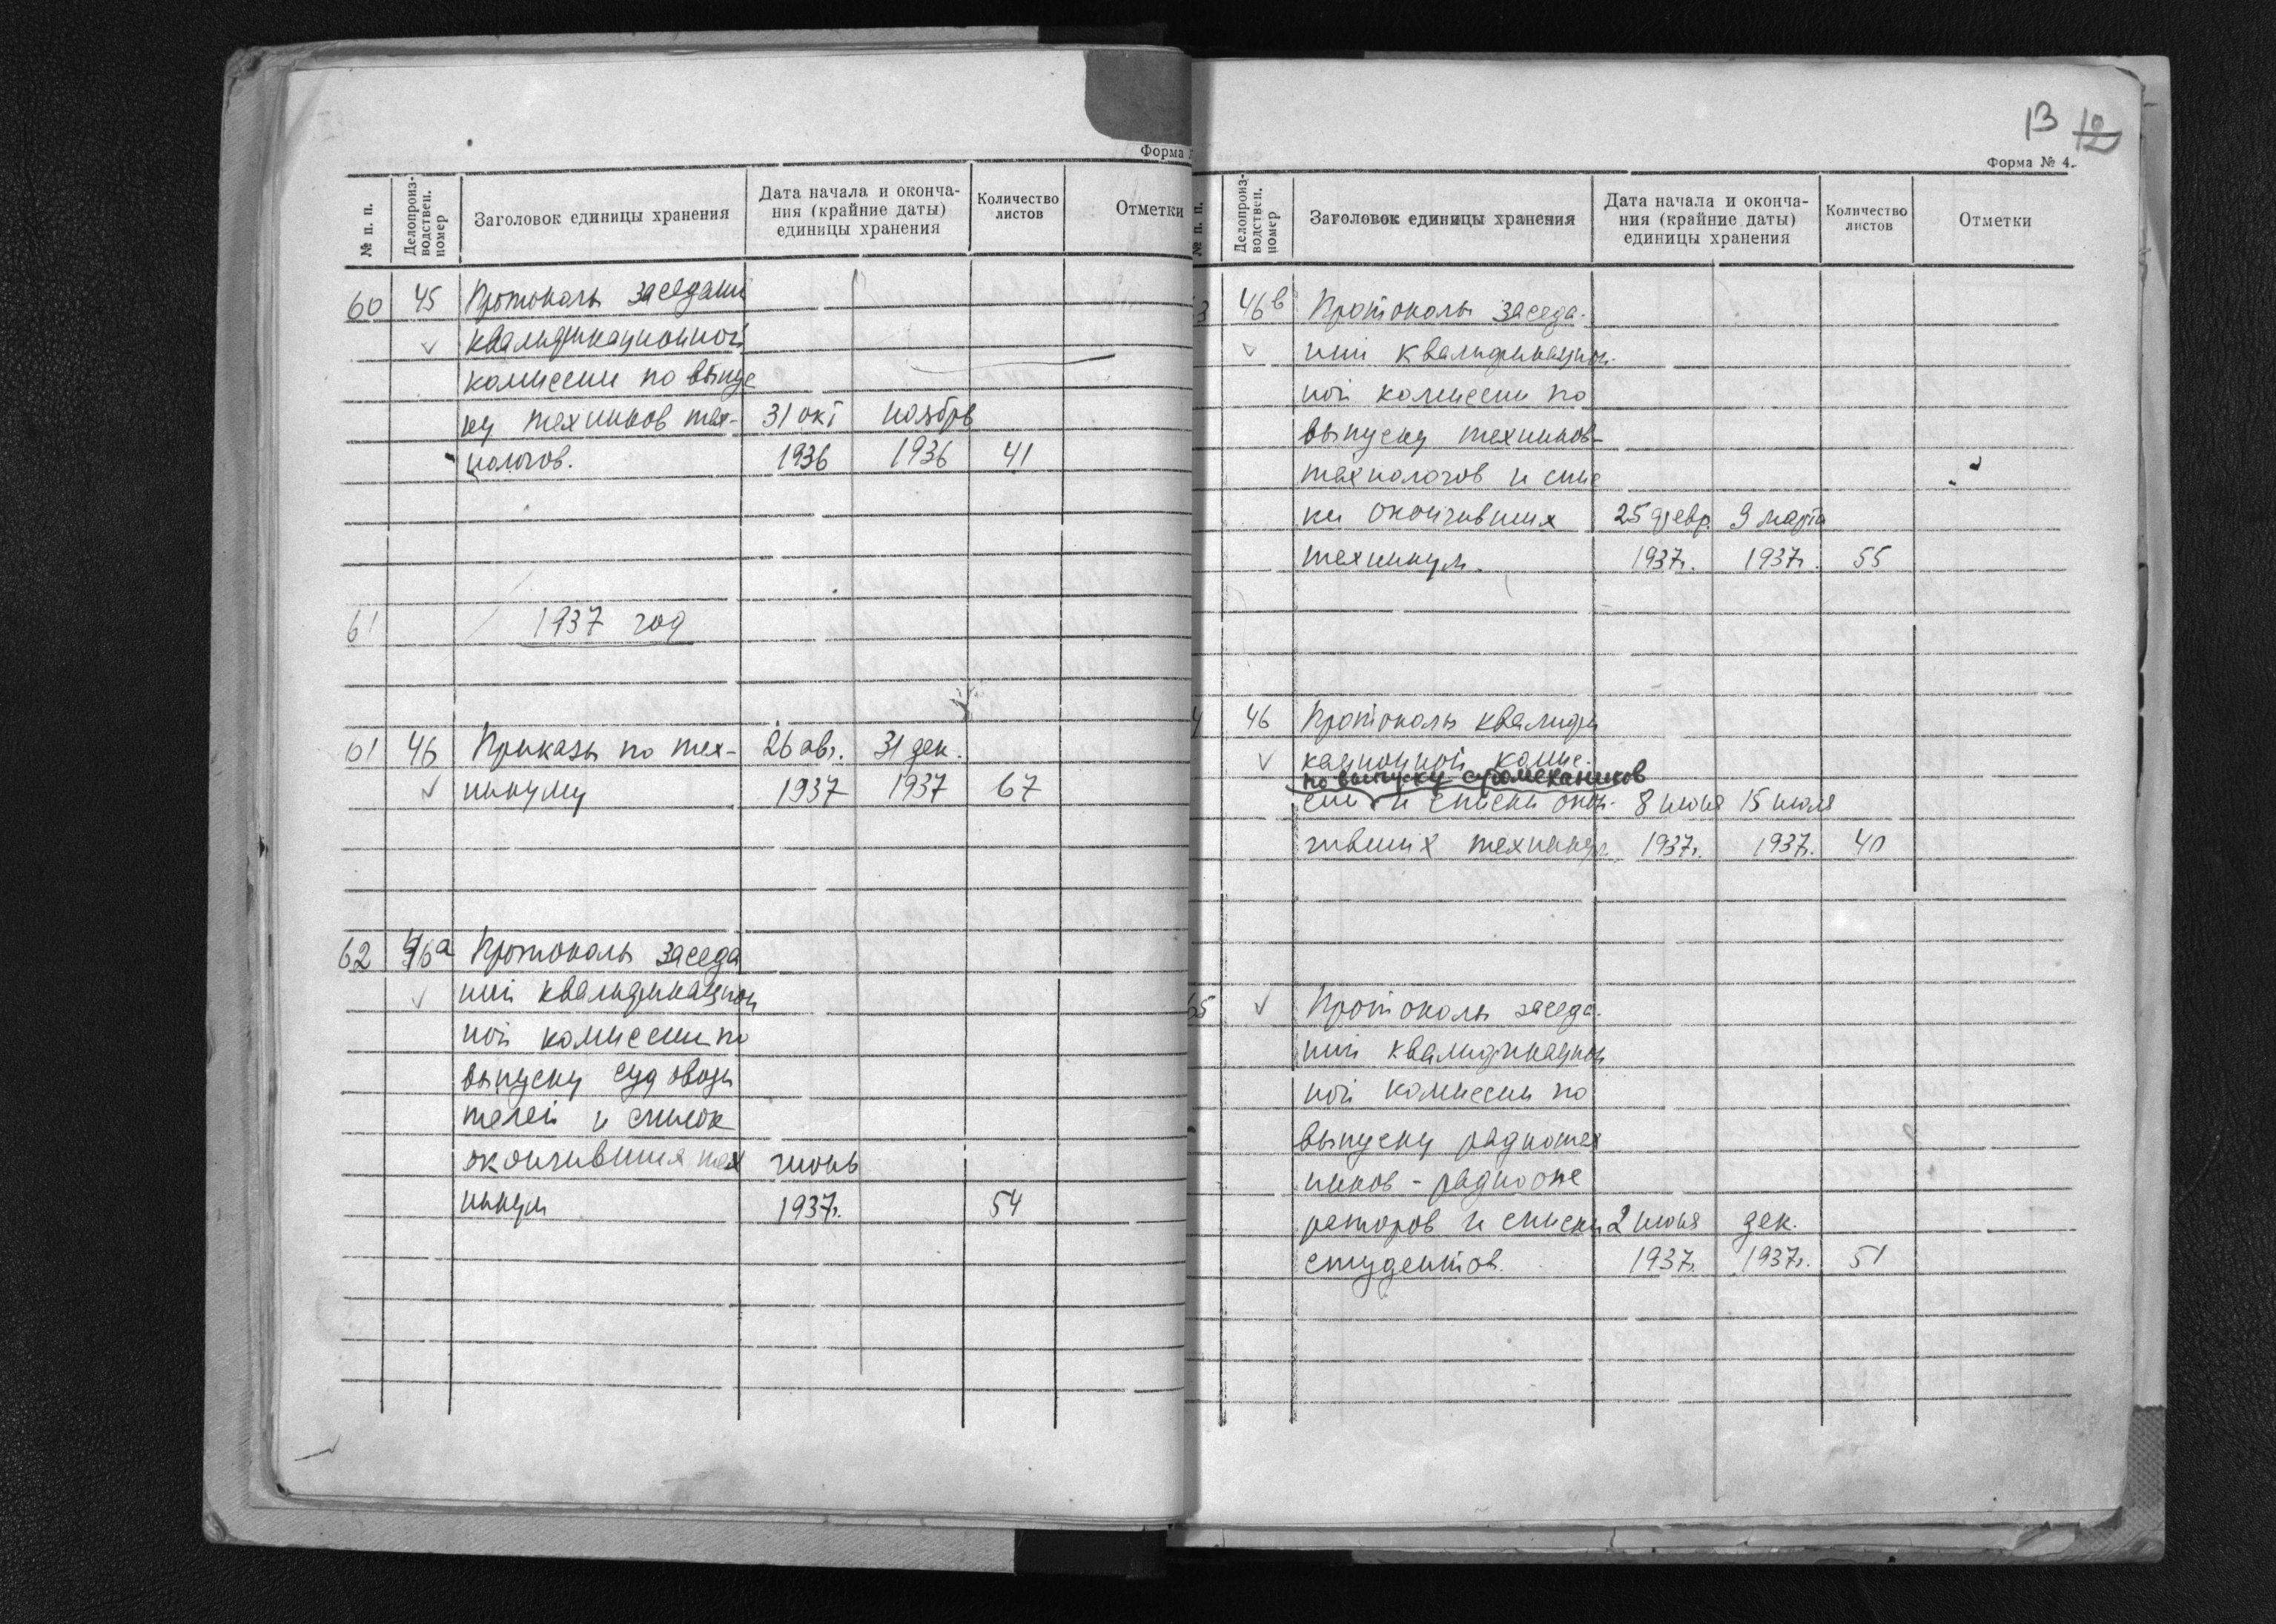 Форма
№ п. п.
Делопроиз-
водствен.
номер
Заголовок единицы хранения
Дата начала и оконча-
ния (крайние даты)
единицы хранения
Количество
листов
Отметки
60 45 Протоколы заседаний
квалификационной
комиссии по выпус
ку техников тех- 31 окт ноябрь
нологов. 1936 1936 41
61 1937 год
61 46 Приказы по тех- 26 авг. 31 дек.
никуму 1937 1937 67
62 46а Протоколы заседа
ний квалификацион
ной комиссии по
выпуску судоводи
телей и список
окончивших тех июнь
никум 1937г. 54
13 12
Форма № 4.
№ п. п.
Делопроиз-
водствен.
номер
Заголовок единицы хранения
Дата начала и оконча-
ния (крайние даты)
единицы хранения
Количество
листов
Отметки
3 46в Протоколы заседа-
ний квалификацион-
ной комиссии по
выпуску техников-
технологов и спис
ки окончивших 25 февр. 9 марта
техникум. 1937г. 1937г. 55
4 46 Протоколы квалифи
кационной комис-
по выпуску судомехаников
сии и списки окон- 8 июня 15 июля
чивших техникум. 1937г. 1937г. 40
65 Протоколы заседа-
ний квалификацион
ной комиссии по
выпуску радиотех
ников - радиоопе
раторов и списки 2 июня дек.
студентов. 1937г. 1937г. 51